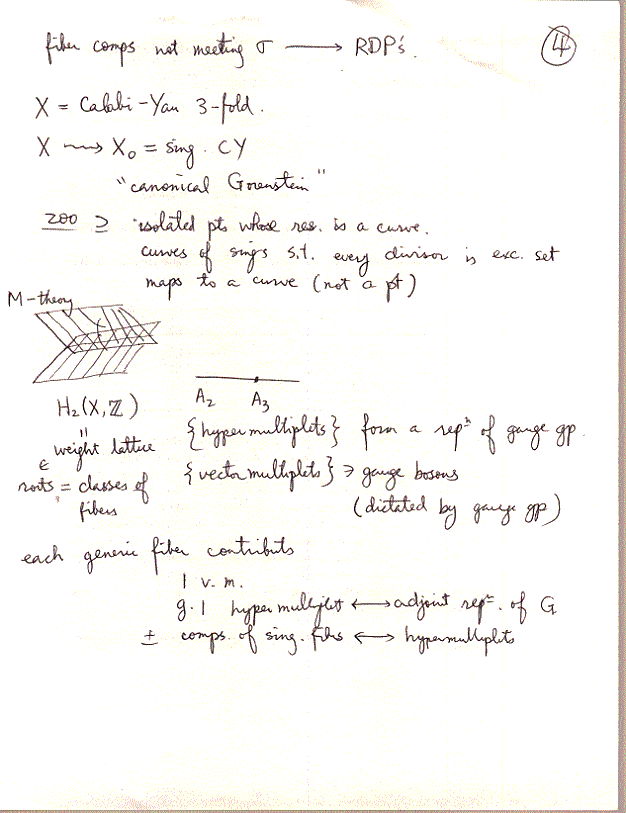 fiber comps not meeting σ ⟶ RDP's.
4
X = Calabi-Yau 3-fold.
X ⇝ X₀ = sing. CY
"canonical Gorenstein"
zoo ⊇ isolated pts whose res. is a curve.
curves of sings s.t. every divisor is exc. set
maps to a curve (not a pt)
M-theory
A₂ A₃
H₂(X, ℤ)
{hypermultiplets} form a repⁿ of gauge gp.
=
weight lattice
∈
{vector multiplets} ∋ gauge bosons
roots = classes of
fibers
(dictated by gauge gp)
each generic fiber contributes
1 v.m.
g·1 hypermultiplet ⟷ adjoint repⁿ. of G
± comps. of sing. fibers ⟷ hypermultiplets